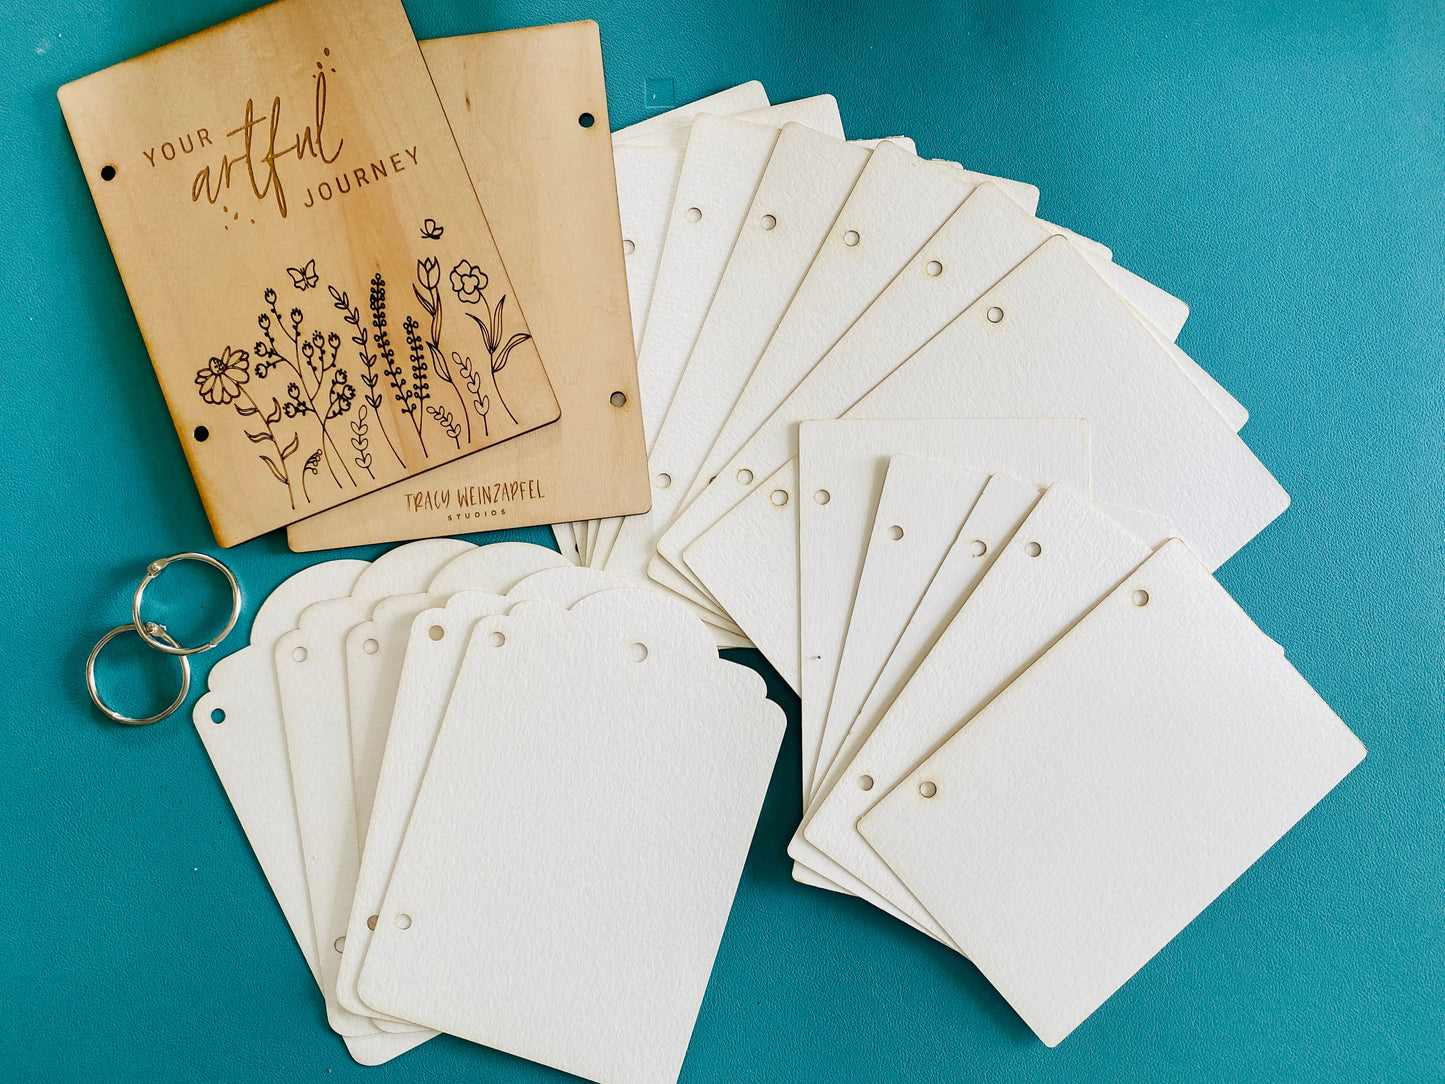 YOUR
artful
JOURNEY
TRACY WEINZAPFEL
STUDIOS